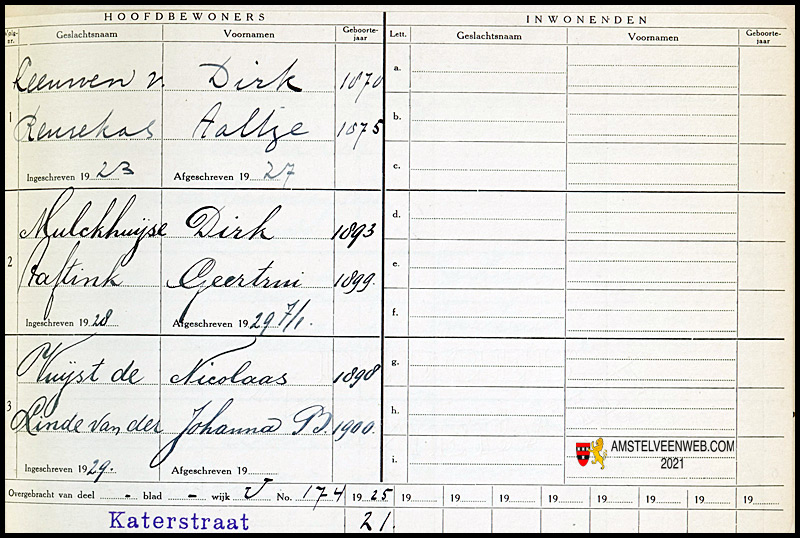 HOOFDBEWONERS INWONENDEN
Volg-nr. Geslachtsnaam Voornamen Geboorte-jaar Lett. Geslachtsnaam Voornamen Geboorte-jaar
Leeuwen v. Dirk 1870 a.
1 Rensekas Aaltje 1875 b.
Ingeschreven 1923 Afgeschreven 1927 c.
Mulckhuijse Dirk 1893 d.
2 Geertrui 1899. e.
Ingeschreven 1928 Afgeschreven 1929 7/1. f.
Vuijst de Nicolaas 1898 g.
3 Linde van der Johanna B 1900. h.
Ingeschreven 1929. Afgeschreven 19 i.
AMSTELVEENWEB.COM
2021
Overgebracht van deel - blad - wijk U No. 174 1925 19 19 19 19 19 19 19 19
Katerstraat 21.